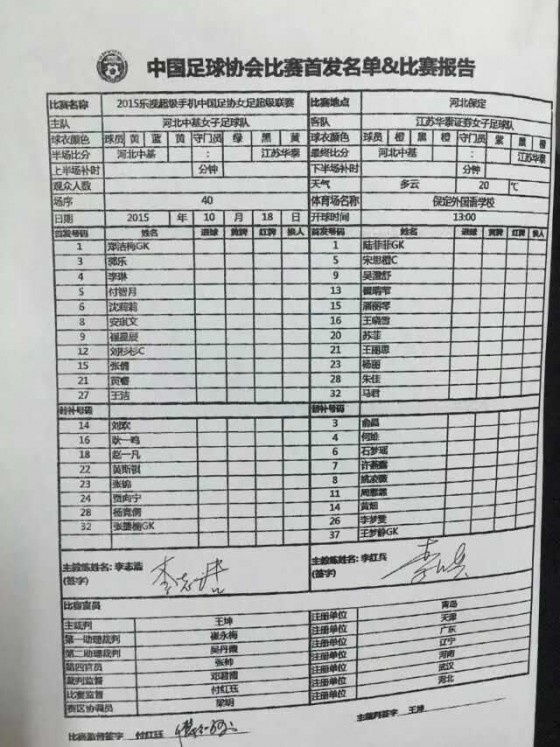 中国足球协会比赛首发名单&比赛报告
比赛名称 2015乐视超级手机中国足协女足超级联赛 比赛地点 河北保定
主队 河北中基女子足球队 客队 江苏华泰证券女子足球队
球衣颜色 球员 黄 蓝 黄 守门员 绿 黑 黄 球衣颜色 球员 橙 黑 橙 守门员 紫 黑 橙
半场比分 河北中基 : 江苏华泰 最终比分 河北中基 : 江苏华泰
上半场补时 分钟 下半场补时 分钟
观众人数 天气 多云 20 ℃
场序 40 体育场名称 保定外国语学校
日期 2015 年 10 月 18 日 开球时间 13:00
首发号码 姓名 进球 黄牌 红牌 换人 首发号码 姓名 进球 黄牌 红牌 换人
1 郑洁梅GK 1 陆菲菲GK
3 郭乐 5 宋思橙C
4 李琳 9 吴澄舒
5 付智月 13
6 沈莉莉 15
8 安琪文 16 王晓雪
9 20 苏菲
12 刘杉杉C 21 王丽思
15 张倩 23 杨丽
21 贺睿 28 朱佳
27 王洁 32 马君
替补号码 替补号码
14 刘欢 3 俞晶
16 耿一鸣 4 何雄
18 赵一凡 6 石梦瑶
22 黄斯祺 7 许燕露
23 张锦 8 姚凌薇
24 贾向宁 11
28 杨竞儒 14 黄烟
32 GK 26 李梦雯
37 王梦静GK
主教练姓名: 李志 主教练姓名: 李红兵
(签字) (签字)
比赛官员
主裁判 王坤 注册单位 青岛
第一助理裁判 崔永梅 注册单位 天津
第二助理裁判 吴丹霞 注册单位 广东
第四官员 张帅 注册单位 辽宁
裁判监督 邓君霞 注册单位 河南
比赛监督 付红珏 注册单位 武汉
赛区协调员 梁娟 注册单位 河北
比赛监督签字 付红珏 主裁判签字 王坤